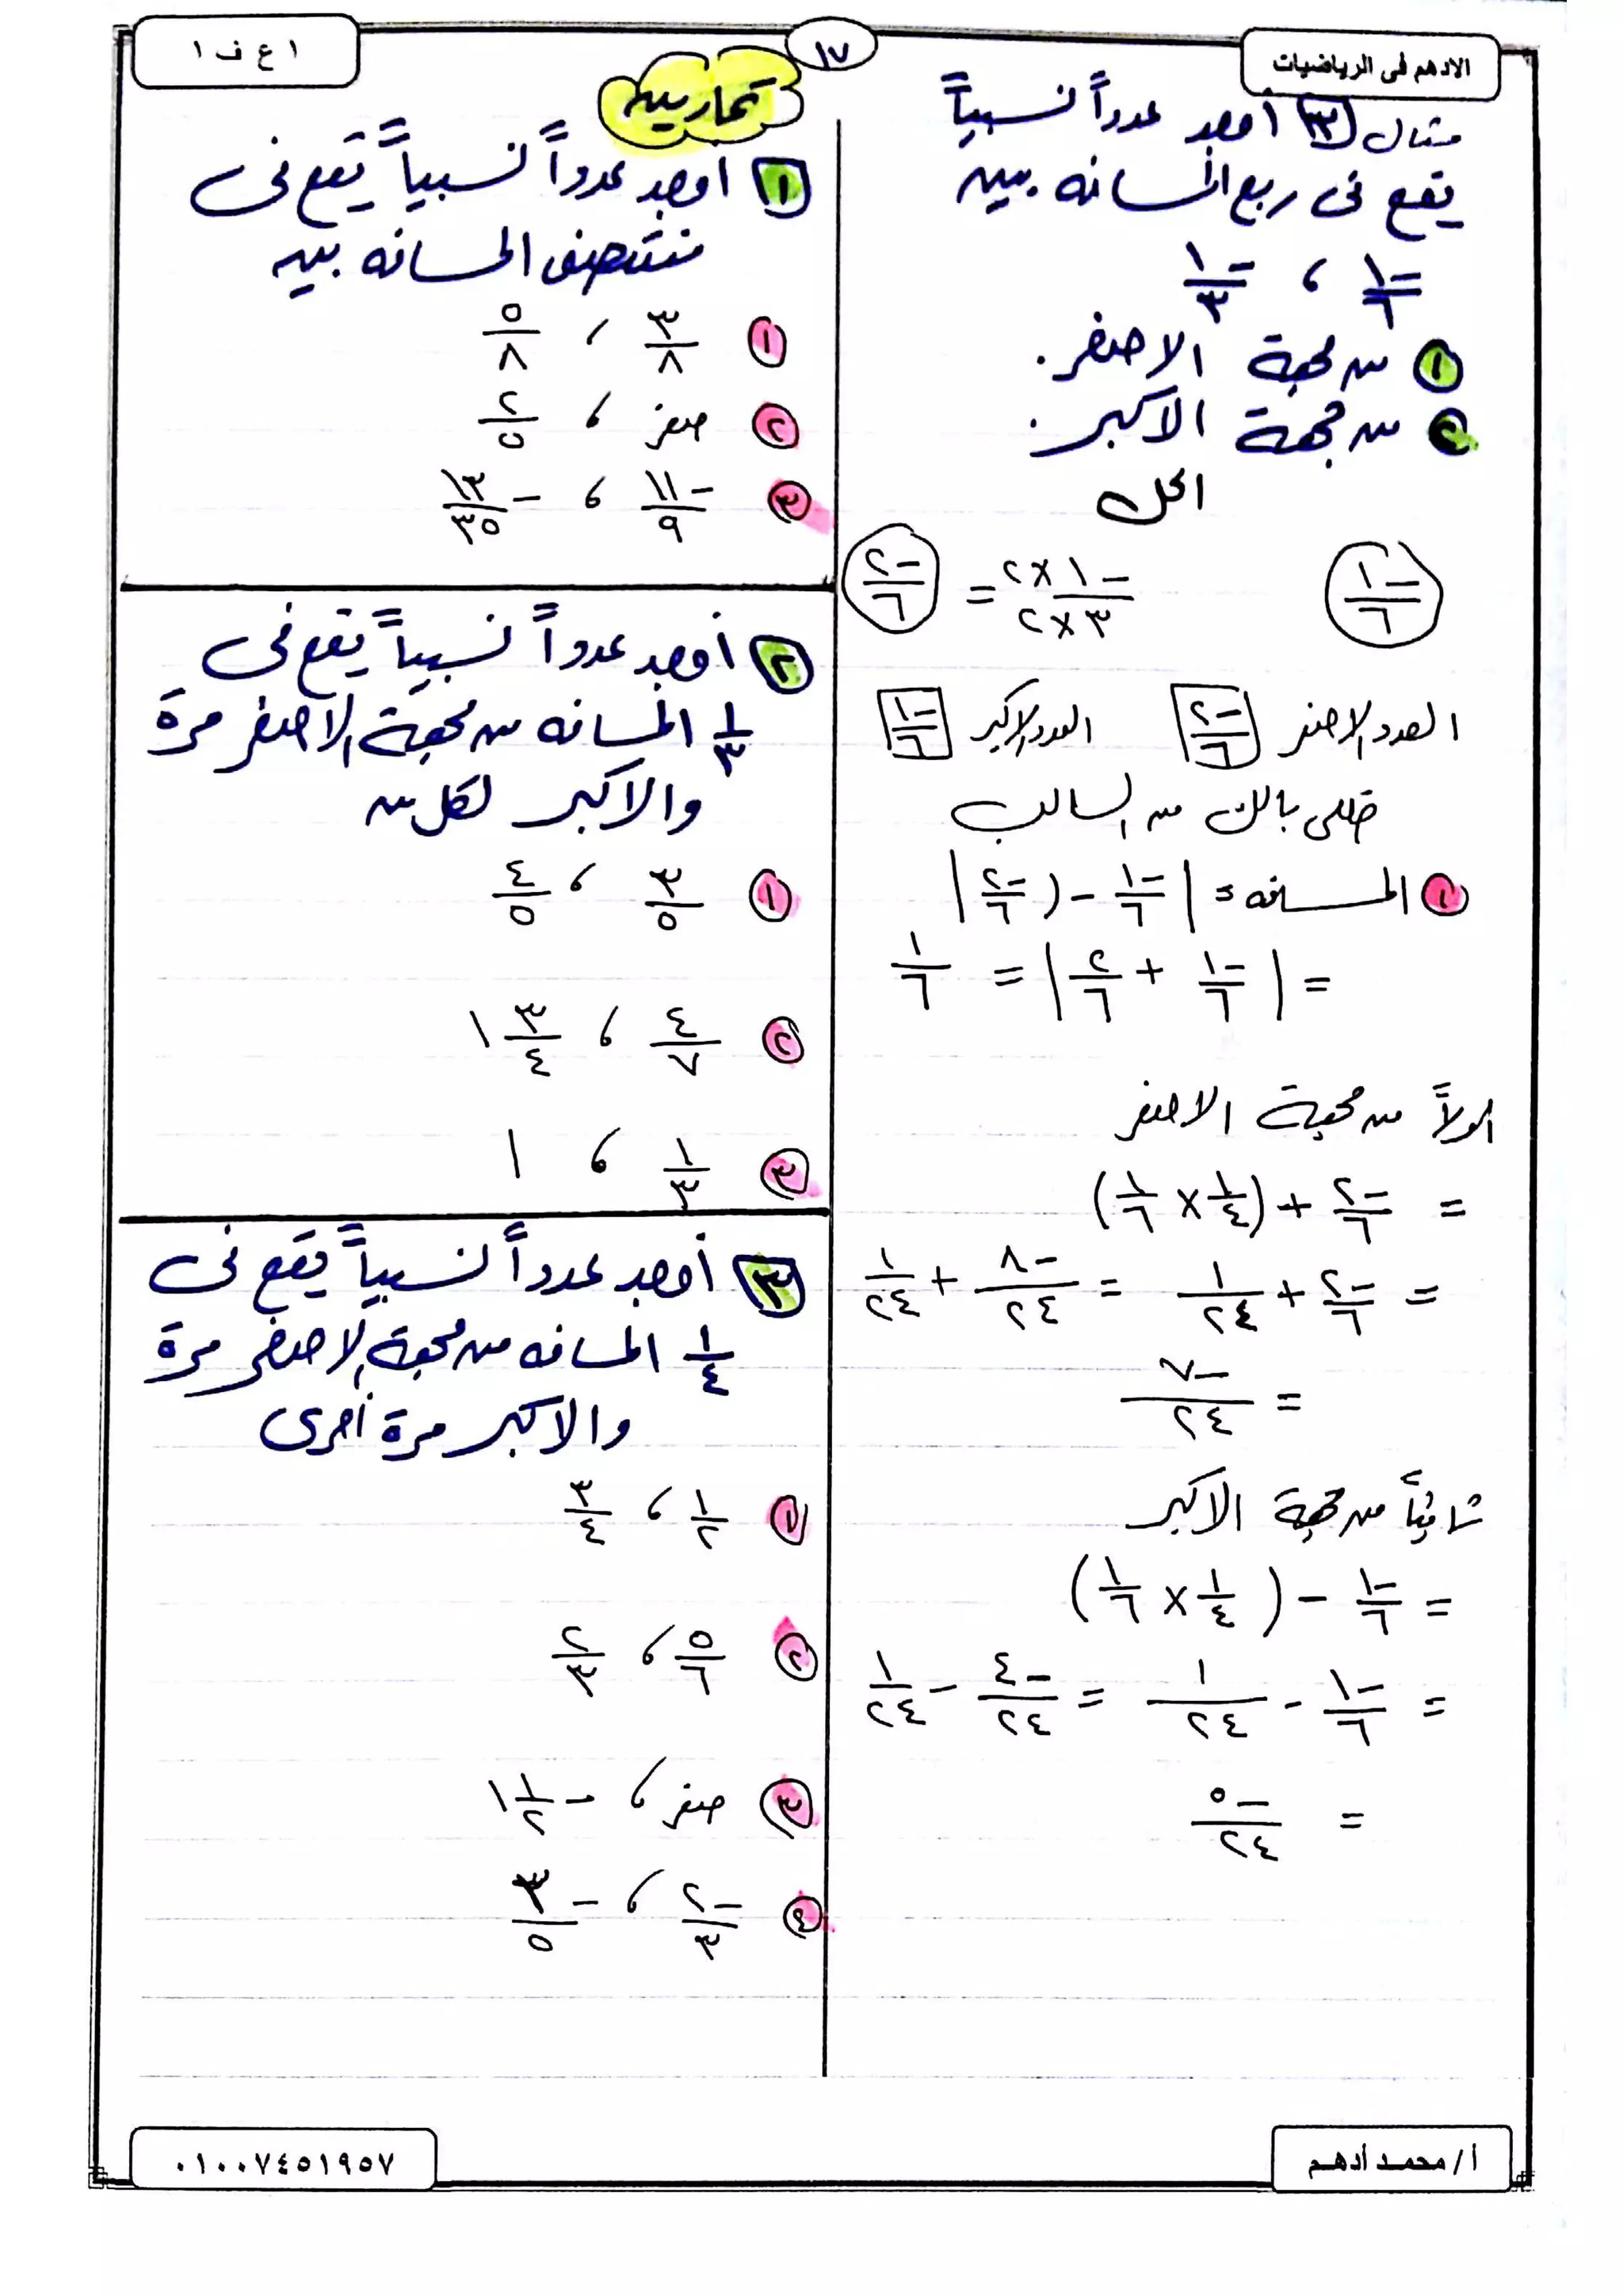 الادهم فى الرياضيات
١٧
١ ع ف ١
مثال (٣) أوجد عدداً نسبياً
يقع فى ربع المسافه بين
-١/٦ ، -١/٣
١ من جهة الاصغر.
٢ من جهة الاكبر.
الحل
-١/٦ -١×٢/٣×٢ = -٢/٦
العدد الاصغر -٢/٦ العدد الاكبر -١/٦
خللى بالك من السالب
١ المسافه = |-١/٦ - (-٢/٦|
= |-١/٦ + ٢/٦| = ١/٦
اولاً من جهة الاصغر
= -٢/٦ + (١/٤ × ١/٦)
= -٢/٦ + ١/٢٤ = -٨/٢٤ + ١/٢٤
= -٧/٢٤
ثانياً من جهة الاكبر
= -١/٦ - (١/٤ × ١/٦)
= -١/٦ - ١/٢٤ = -٤/٢٤ - ١/٢٤
= -٥/٢٤
تمارين
١ أوجد عدداً نسبياً يقع فى
منتصف المسافه بين
١ ٣/٨ ، ٥/٨
٢ صفر ، ٢/٥
٣ -١١/٩ ، -١٣/٣٥
٢ أوجد عدداً نسبياً يقع فى
١/٣ المسافه من جهة الاصغر مرة
والاكبر لكل من
١ ٣/٥ ، ٤/٥
٢ ٤/٧ ، ١ ٣/٤
٣ ١/٣ ، ١
٣ أوجد عدداً نسبياً يقع فى
١/٤ المسافه من جهة الاصغر مرة
والاكبر مرة أخرى
١ ١/٢ ، ٣/٤
٢ ٥/٦ ، ٢/٣
٣ صفر ، -١ ١/٢
٤ -٢/٣ ، -٣/٥
أ/ محمد أدهم
٠١٠٠٧٤٥١٩٥٧